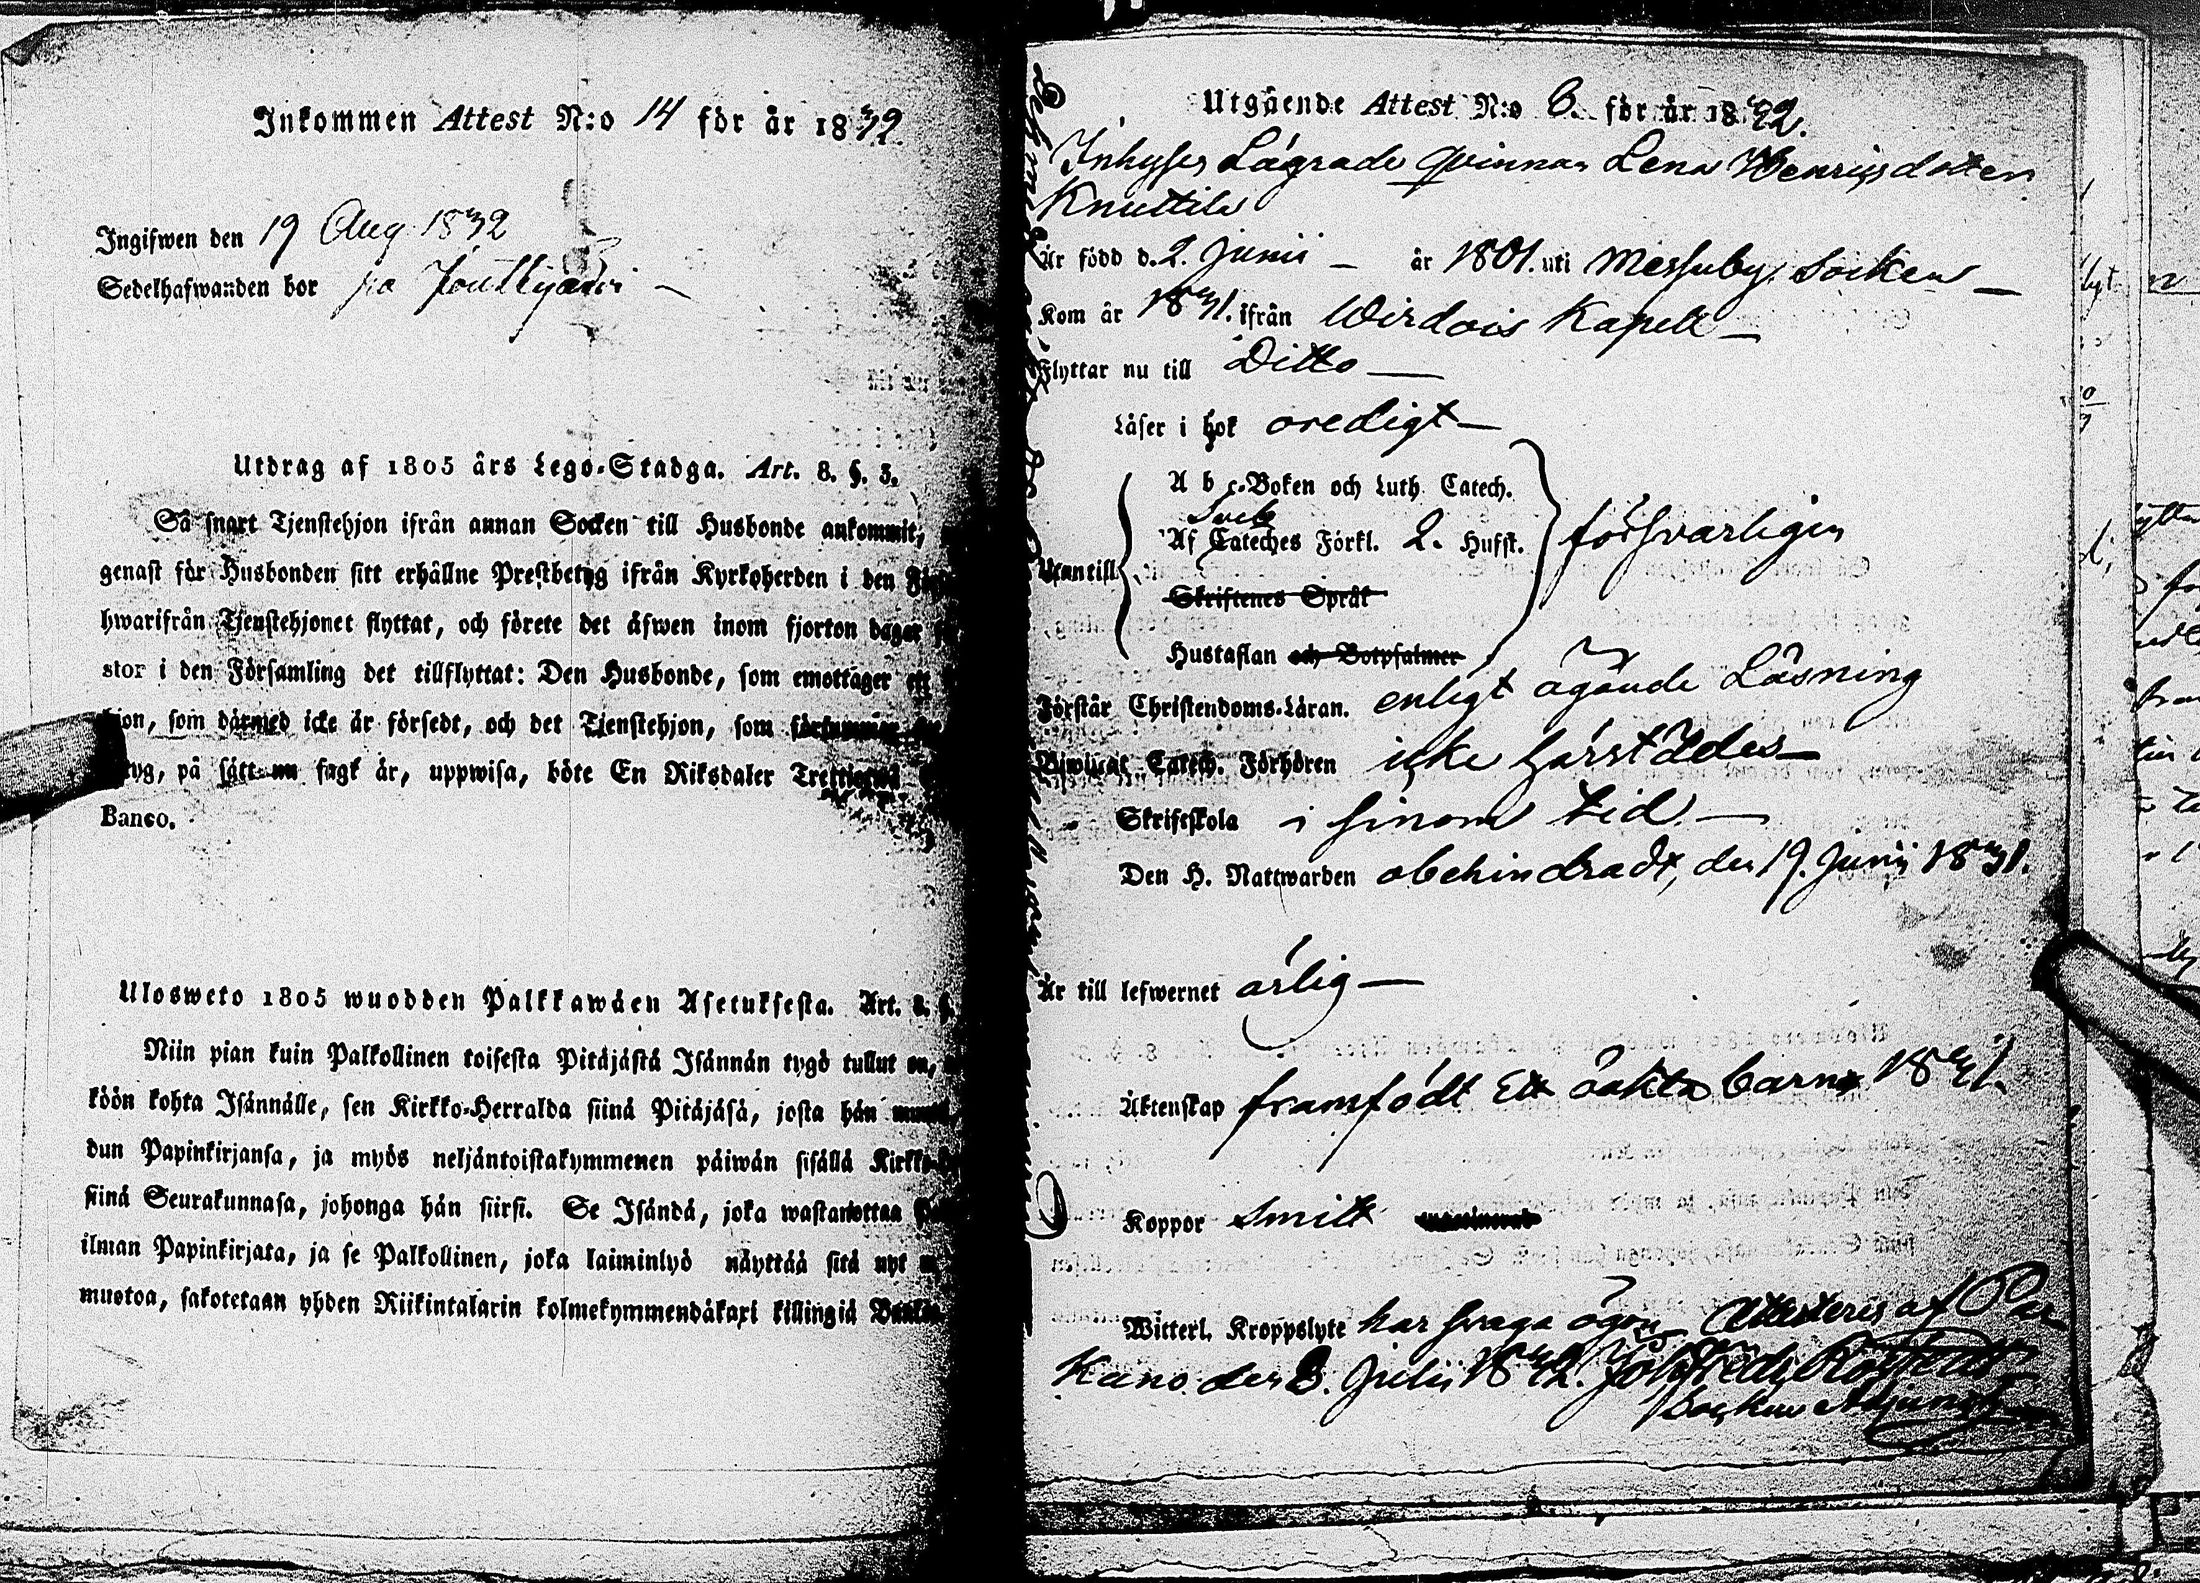 Inkommen Attest N:o 14 för år 1832
Ingifwen den 19 Aug 1832
Sedelhafwanden bor på
Utdrag af 1805 års Lego-Stadga. Art. 8. §. 3.
Så snart Tjenstehjon ifrån annan Socken till Husbonde ankommit,
genast för Husbonden sitt erhållne Prestbetyg ifrån Kyrkoherden i den
hwarifrån Tjenstehjonet flyttat, och förete det äfwen inom fjorton dagar
stor i den Församling det tillflyttat: Den Husbonde, som emottager ett
hjon, som därmed icke är försedt, och det Tjenstehjon, som försummar
tyg, på sätt nu sagt är, uppwisa, böte En Riksdaler Trettiotwå
Banco.
Ulosweto 1805 wuodden Palkkawäen Asetuksesta. Art. 8. §.
Niin pian kuin Palkollinen toisesta Pitäjästä Isännän tygö tullut on,
köön kohta Isännälle, sen Kirkko-Herralda siinä Pitäjäsä, josta hän
dun Papinkirjansa, ja myös neljäntoistakymmenen päiwän sisällä
siinä Seurakunnasa, johonga hän siirsi. Se Isändä, joka wastanottaa
ilman Papinkirjata, ja se Palkollinen, joka laiminlyö näyttää sitä nyt
muotoa, sakotetaan yhden Riikintalarin kolmekymmendäkaxi killingiä
Utgående Attest N:o 6. för år 1832.
Inhyses Lägrade qvinnan Lena Henrigsdotter
Knuttila
Är född d. 2. Junii – år 1801. uti Messuby Socken –
Kom år 1831. ifrån Wirdois Kapell –
Flyttar nu till Ditto –
Läser i bok oredigt –
A b c-Boken och Luth Catech.
Sveb
Af Cateches Förkl. 2. Hufst.
försvarligen
Utantill
Skriftenes Språk
Hustaflan och Botpsalmer
Förstår Christendoms-Läran. enligt ägande Läsning
Bewistat Catech. Förhören icke härstädes –
Skriftskola i sinom tid –
Den H. Nattwarden obehindradt, den 19. Junii 1831.
Är till lefwernet ärlig –
Äktenskap framfödt Ett oäkta barn 1831.
Koppor Smitt vaccinerad
Witterl. Kroppslyte har svaga ögon Attesteras af Par
kano den 3. Julii 1832.
Socken Adjunct